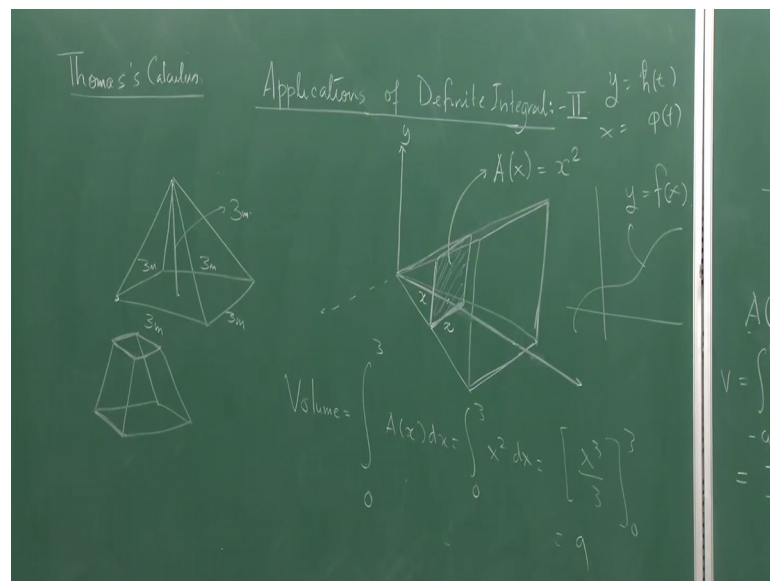 Thomas's Calculus.
Applications of Definite Integral:-II
y = h(t)
x = φ(t)
y
A(x) = x²
y = f(x)
3m.
3m 3m
3m 3m
x
x
Volume = ∫₀³ A(x) dx = ∫₀³ x² dx = [x³/3]₀³
= 9
A(
V = ∫
=